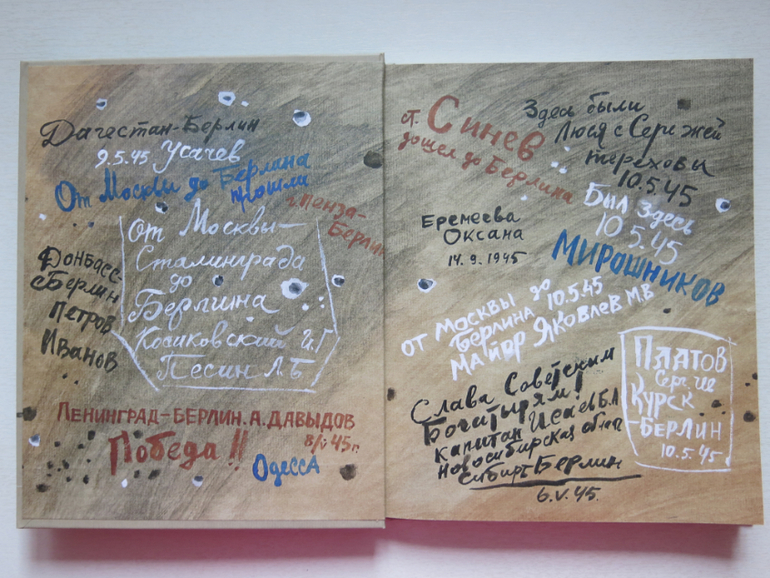 Дагестан-Берлин
9.5.45 Усачев
От Москвы до Берлина
прошли
г. Пенза-
Берлин
От Москвы-
Сталинграда
до
Берлина
Косиковский И.Г
Песин Л.Б
Донбасс-
Берлин
Петров
Иванов
ЛЕНИНГРАД-БЕРЛИН. А. ДАВЫДОВ
8/V 45 г.
Победа!!
ОДЕССА
ст. Синев
дошел до Берлина
Здесь были
Люся с Сережей
Тереховы
10.5.45
Был Здесь
10.5.45
МИРОШНИКОВ
ЕРЕМЕЕВА
ОКСАНА
14.9.1945
ОТ МОСКВЫ до
Берлина 10.5.45
МАЙОР ЯКОВЛЕВ М.В
Слава Советским
Богатырям!
КАПИТАН Исаев Б.А
Новосибирская област
Сибирь Берлин
6.V.45.
ПЛАТОВ
Сергей
КУРСК
-БЕРЛИН
10.5.45